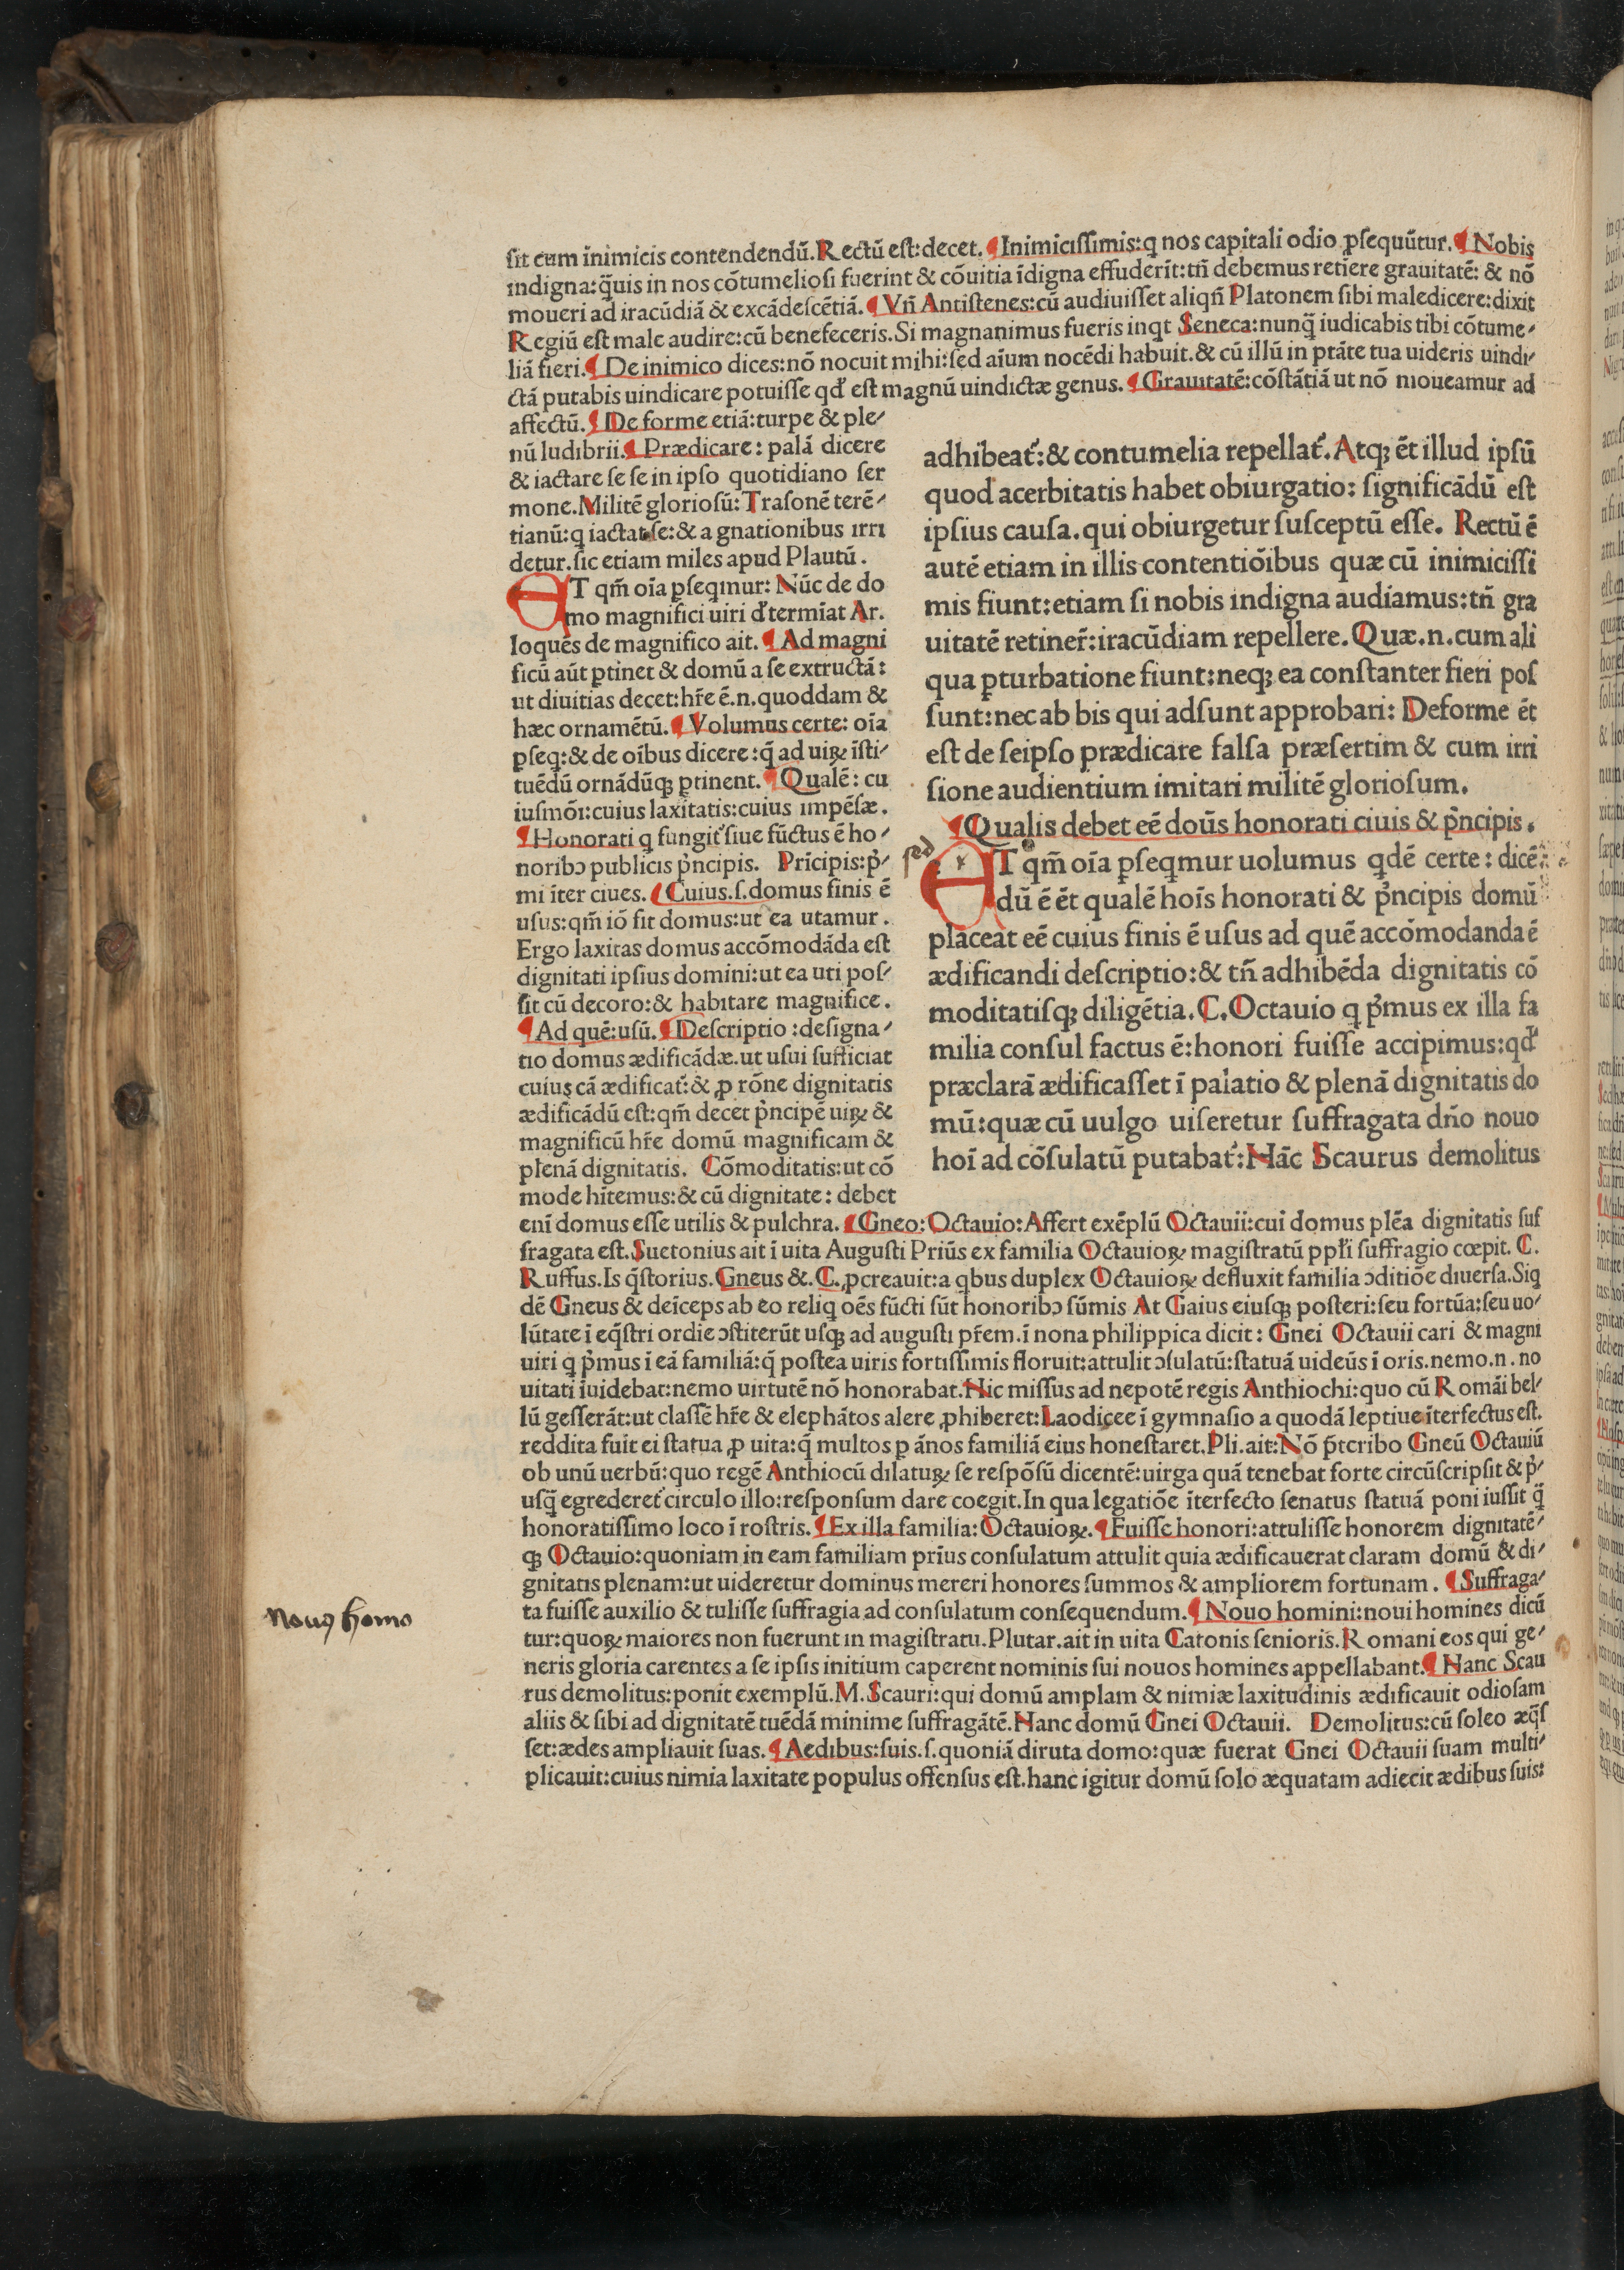 sit cum inimicis contendendū. Rectū est: decet. ¶ Inimicissimis: q nos capitali odio ꝑsequūtur. ¶ Nobis
indigna: q̄uis in nos cōtumeliosi fuerint & cōuitia īdigna effuderīt: tn̄ debemus retiere grauitatē: & nō
moueri ad iracūdiā & excādescētiā. ¶ Vn̄ Antistenes: cū audiuisset aliqn̄ Platonem sibi maledicere: dixit
Regiū est male audire: cū benefeceris. Si magnanimus fueris inqt Seneca: nunq̄ iudicabis tibi cōtume⸗
liā fieri. ¶ De inimico dices: nō nocuit mihi: sed aīum nocēdi habuit. & cū illū in ptāte tua uideris uindi⸗
ctā putabis uindicare potuisse qd̄ est magnū uindictæ genus. ¶ Grauitatē: cōstātiā ut nō moueamur ad
affectū. ¶ De forme etiā: turpe & ple⸗
nū ludibrii. ¶ Prædicare: palā dicere
& iactare se se in ipso quotidiano ser
mone. Militē gloriosū: Trasonē terē⸗
tianū: q iactat se: & a gnationibus irri
detur. sic etiam miles apud Plautū.
ET qm̄ oīa ꝑseqmur: Nūc de do
mo magnifici uiri d̄termīat Ar.
loquēs de magnifico ait. ¶ Ad magni
ficū aūt ꝑtinet & domū a se extructā:
ut diuitias decet: hr̄e ē. n. quoddam &
hæc ornamētū. ¶ Volumus certe: oīa
ꝑseq: & de oībus dicere: q̄ ad uiꝝ īsti⸗
tuēdū ornādūqꝫ ꝑtinent. ¶ Qualē: cu
iusmōi: cuius laxitatis: cuius impēsæ.
¶ Honorati q fungit᷑ siue fūctus ē ho⸗
noribꝰ publicis p̄ncipis. Prīcipis: p̄⸗
mi īter ciues. ¶ Cuius. s. domus finis ē
usus: qm̄ iō fit domus: ut ea utamur.
Ergo laxitas domus accōmodāda est
dignitati ipsius domini: ut ea uti pos⸗
sit cū decoro: & habitare magnifice.
¶ Ad quē: usū. ¶ Descriptio: designa⸗
tio domus ædificādæ. ut usui sufficiat
cuius cā ædificat᷑: & ꝓ rōne dignitatis
ædificādū est: qm̄ decet p̄ncipē uiꝝ &
magnificū hr̄e domū magnificam &
plenā dignitatis. Cōmoditatis: ut cō
mode hītemus: & cū dignitate: debet
adhibeat᷑: & contumelia repellat᷑. Atqꝫ ēt illud ipsū
quod acerbitatis habet obiurgatio: significādū est
ipsius causa. qui obiurgetur susceptū esse. Rectū ē
autē etiam in illis contentiōibus quæ cū inimicissi
mis fiunt: etiam si nobis indigna audiamus: tn̄ gra
uitatē retiner̄: iracūdiam repellere. Quæ. n. cum ali
qua ꝑturbatione fiunt: neqꝫ ea constanter fieri pos
sunt: nec ab bis qui adsunt approbari: Deforme ēt
est de seipso prædicare falsa præsertim & cum irri
sione audientium imitari militē gloriosum.
¶ Qualis debet eē doūs honorati ciuis & p̄ncipis.
sed
ET qm̄ oīa ꝑseqmur uolumus qdē certe: dicē
dū ē ēt qualē hoīs honorati & p̄ncipis domū
placeat eē cuius finis ē usus ad quē accōmodanda ē
ædificandi descriptio: & tn̄ adhibēda dignitatis cō
moditatisqꝫ diligētia. C. Octauio q p̄mus ex illa fa
milia consul factus ē: honori fuisse accipimus: qd̄
præclarā ædificasset ī palatio & plenā dignitatis do
mū: quæ cū uulgo uiseretur suffragata dn̄o nouo
hoī ad cōsulatū putabat᷑: Hāc Scaurus demolitus
enī domus esse utilis & pulchra. ¶ Gneo: Octauio: Affert exēplū Octauii: cui domus plēa dignitatis suf
fragata est. Suetonius ait ī uita Augusti Priūs ex familia Octauioꝝ magistratū ppl̄i suffragio cœpit. C.
Ruffus. Is q̄storius. Gneus &. C. ꝓcreauit: a qbus duplex Octauioꝝ defluxit familia ↄditiōe diuersa. Siq
dē Gneus & deīceps ab eo reliq oēs fūcti sūt honoribꝰ sūmis At Gaius eiusqꝫ posteri: seu fortūa: seu uo⸗
lūtate ī eq̄stri ordīe ↄstiterūt usqꝫ ad augusti pr̄em. ī nona philippica dicit: Gnei Octauii cari & magni
uiri q p̄mus ī eā familiā: q̄ postea uiris fortissimis floruit: attulit ↄsulatū: statuā uideūs ī oris. nemo. n. no
uitati īuidebat: nemo uirtutē nō honorabat. Hic missus ad nepotē regis Anthiochi: quo cū Romāi bel⸗
lū gesserāt: ut classē hr̄e & elephātos alere ꝓhiberet: Laodicee ī gymnasio a quodā leptiue īterfectus est.
reddita fuit ei statua ꝓ uita: q̄ multos ꝑ ānos familiā eius honestaret. Pli. ait: Nō p̄tcribo Gneū Octauiū
ob unū uerbū: quo regē Anthiocū dilatuꝝ se respōsū dicentē: uirga quā tenebat forte circūscripsit & p̄⸗
usq̄ egrederet᷑ circulo illo: responsum dare coegit. In qua legatiōe īterfecto senatus statuā poni iussit q̄
honoratissimo loco ī rostris. ¶ Ex illa familia: Octauioꝝ. ¶ Fuisse honori: attulisse honorem dignitatē⸗
qꝫ Octauio: quoniam in eam familiam prius consulatum attulit quia ædificauerat claram domū & di⸗
gnitatis plenam: ut uideretur dominus mereri honores summos & ampliorem fortunam. ¶ Suffraga⸗
ta fuisse auxilio & tulisse suffragia ad consulatum consequendum. ¶ Nouo homini: noui homines dicū
Nouꝰ homo
tur: quoꝝ maiores non fuerunt in magistratu. Plutar. ait in uita Catonis senioris. Romani eos qui ge⸗
neris gloria carentes a se ipsis initium caperent nominis sui nouos homines appellabant. ¶ Hanc Scau
rus demolitus: ponit exemplū. M. Scauri: qui domū amplam & nimiæ laxitudinis ædificauit odiosam
aliis & sibi ad dignitatē tuēdā minime suffragātē. Hanc domū Gnei Octauii. Demolitus: cū soleo æq̄s
set: ædes ampliauit suas. ¶ Aedibus: suis. s. quoniā diruta domo: quæ fuerat Gnei Octauii suam multi⸗
plicauit: cuius nimia laxitate populus offensus est. hanc igitur domū solo æquatam adiecit ædibus suis: